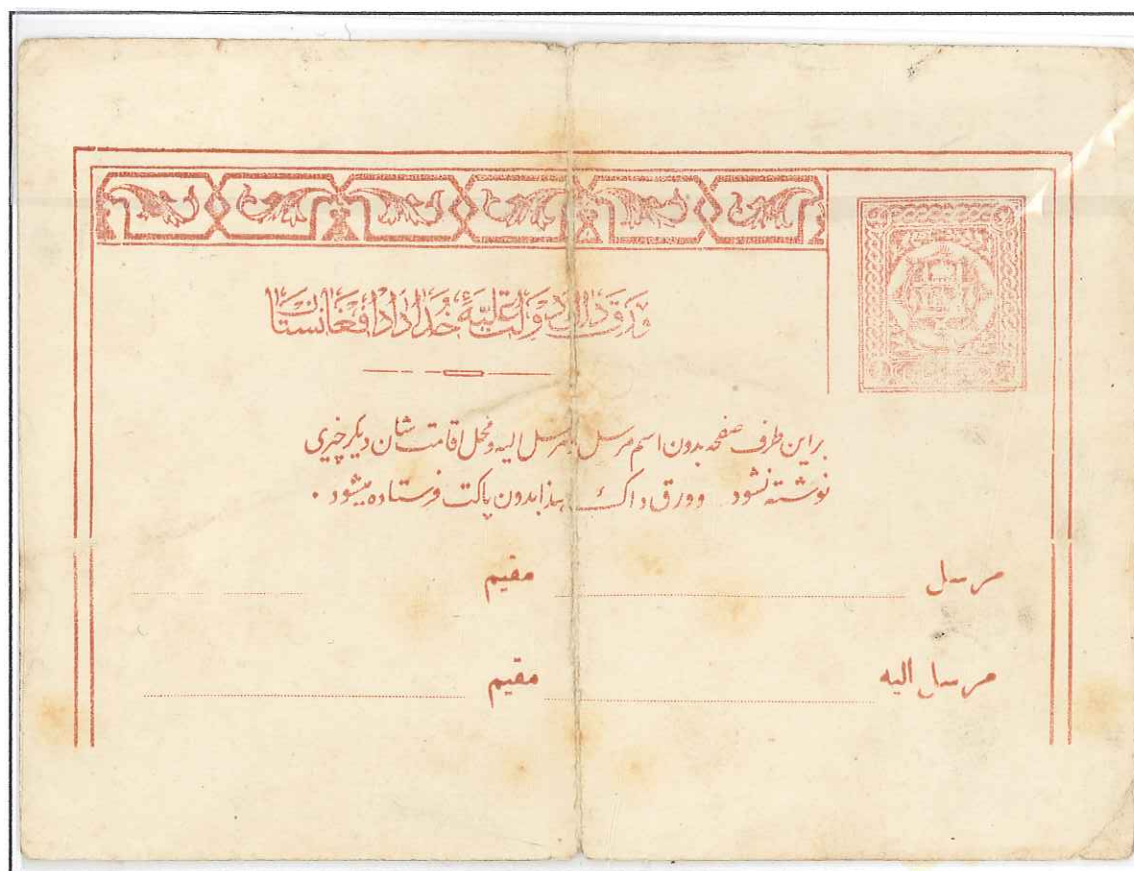 ورق داک دولت علیهٔ خداداد افغانستان
براین طرف صفحه بدون اسم مرسل مرسل الیه و محل اقامت شان دیگر چیزی
نوشته نشود وورق داک هذا بدون پاکت فرستاده میشود .
مرسل مقیم
مرسل الیه مقیم